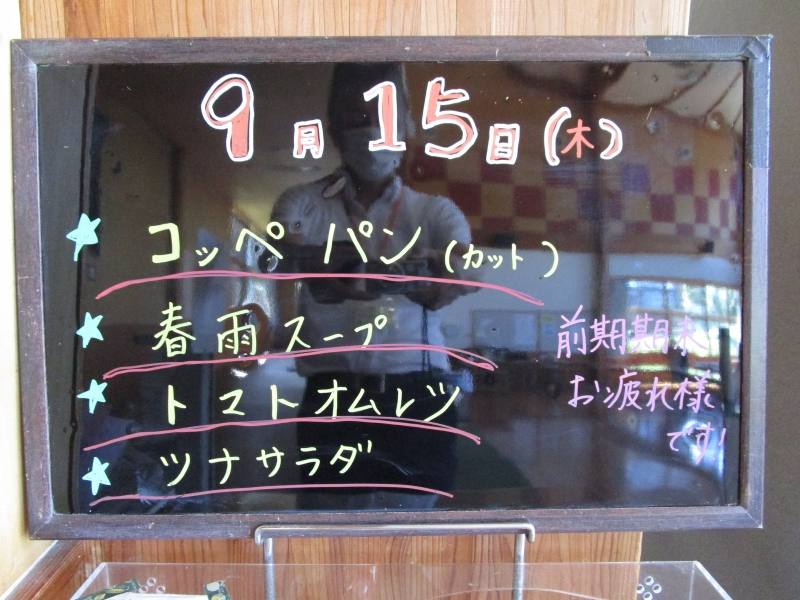 9月15日(木)
コッペパン(カット)
春雨スープ
トマトオムレツ
ツナサラダ
前期期末
お疲れ様
です!